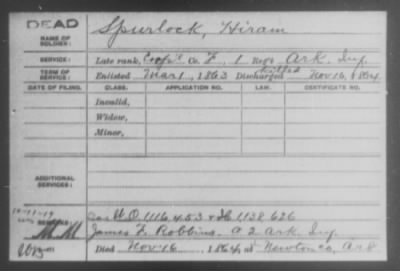 DEAD
NAME OF SOLDIER: Spurlock, Hiram
SERVICE: Late rank, Corp'l Co. F, 1 Reg't Ark. Inf.
TERM OF SERVICE: Enlisted Mar 1, 1863 Discharged Killed Nov 16, 1864
DATE OF FILING. CLASS. APPLICATION NO. LAW. CERTIFICATE NO.
Invalid,
Widow,
Minor,
ADDITIONAL SERVICES:
REMARKS: W.O. 1116.453 + 1138.626
James F. Robbins. a 2 Ark Inf.
Died Nov 16, 1864, at Newton Co, Ark